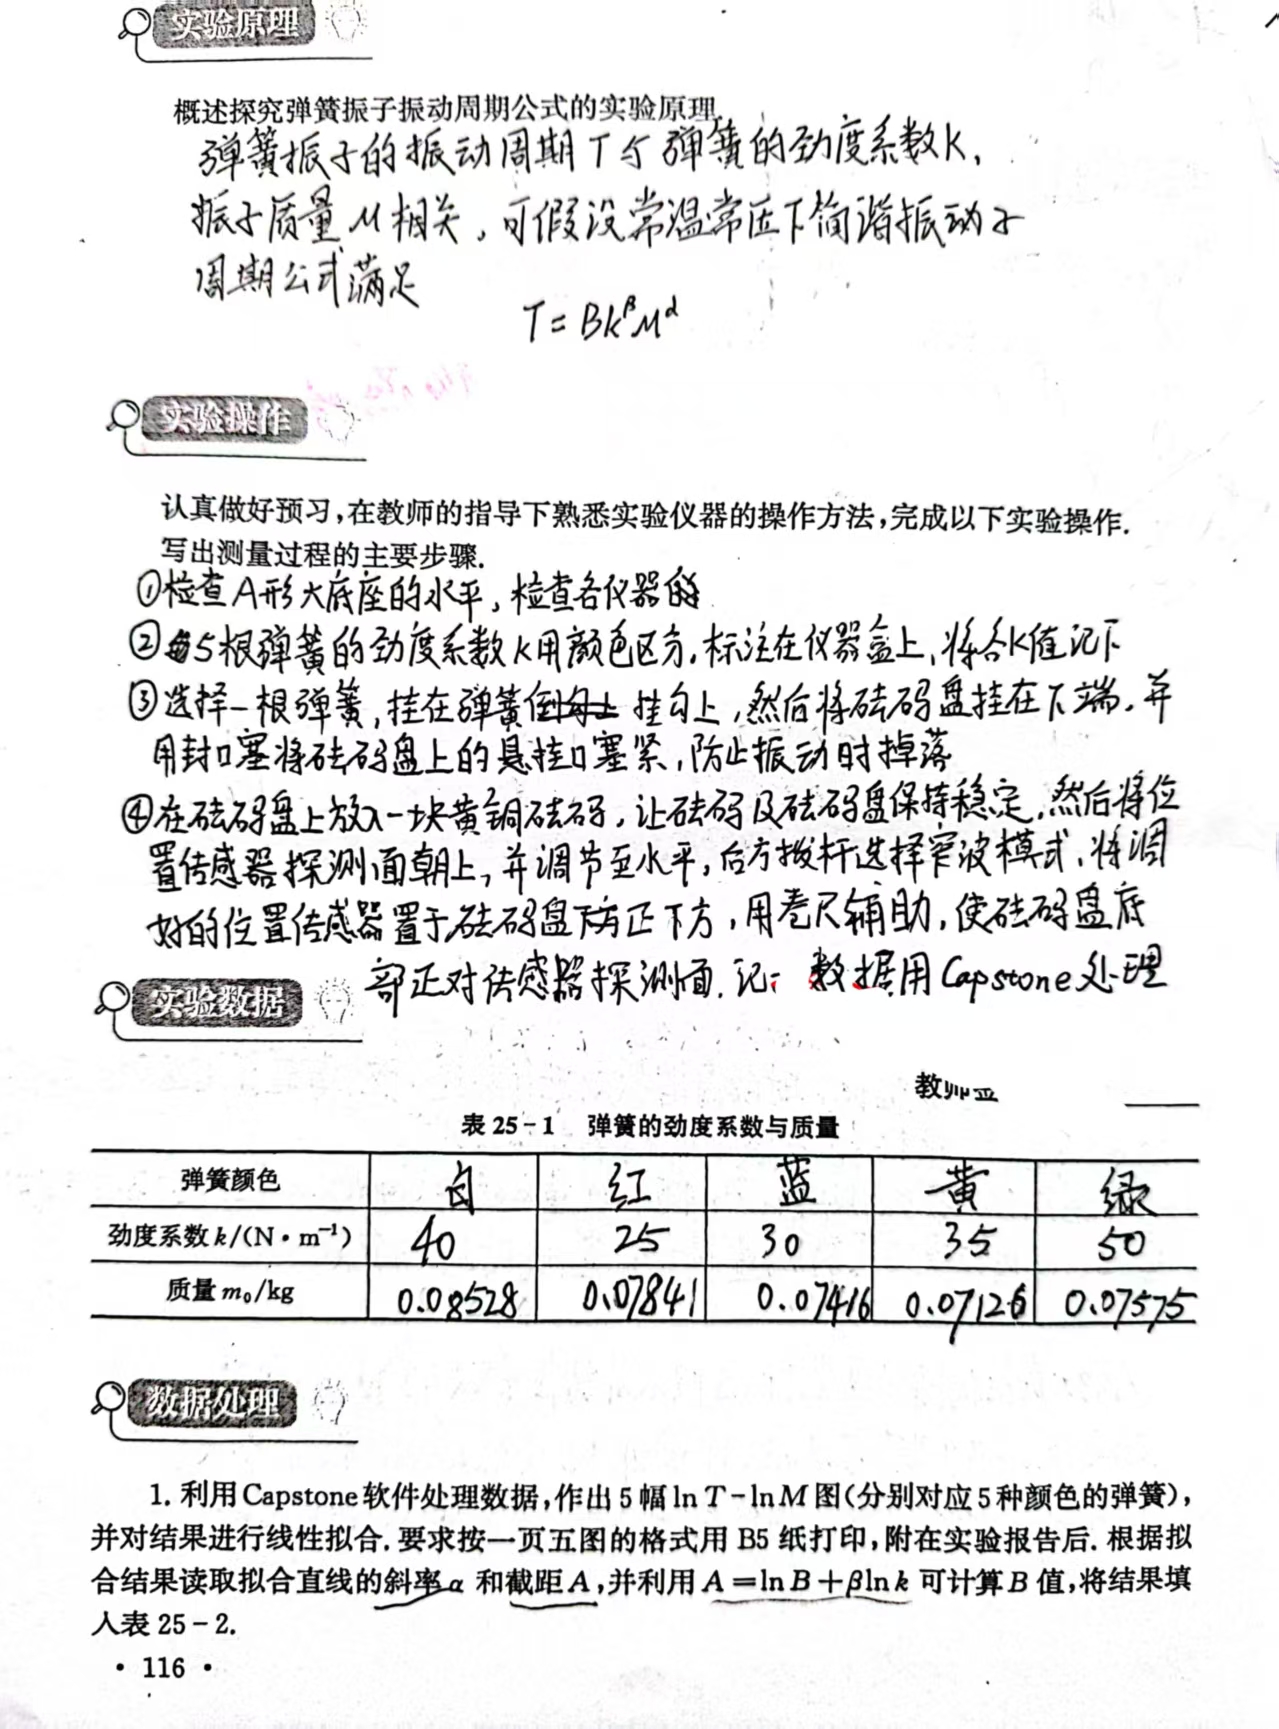 实验原理
概述探究弹簧振子振动周期公式的实验原理.
弹簧振子的振动周期T与弹簧的劲度系数K、
振子质量M相关，可假设常温常压下简谐振动子
周期公式满足
T=Bk^βM^α
实验操作
认真做好预习,在教师的指导下熟悉实验仪器的操作方法,完成以下实验操作.
写出测量过程的主要步骤.
①检查A形大底座的水平，检查各仪器
②5根弹簧的劲度系数K用颜色区分,标注在仪器盒上,将各K值记下
③选择一根弹簧,挂在弹簧挂勾上,然后将砝码盘挂在下端,并
用封口塞将砝码盘上的悬挂口塞紧,防止振动时掉落
④在砝码盘上放入一块黄铜砝码,让砝码及砝码盘保持稳定,然后将位
置传感器探测面朝上,并调节至水平,后方拨杆选择窄波模式,将调
好的位置传感器置于砝码盘正下方,用卷尺辅助,使砝码盘底
部正对传感器探测面.记 数据用Capstone处理
实验数据
教师
表25-1 弹簧的劲度系数与质量
弹簧颜色 白 红 蓝 黄 绿
劲度系数k/(N·m⁻¹) 40 25 30 35 50
质量m₀/kg 0.08528 0.07841 0.07416 0.07126 0.07575
数据处理
1. 利用Capstone软件处理数据,作出5幅lnT-lnM图(分别对应5种颜色的弹簧),
并对结果进行线性拟合.要求按一页五图的格式用B5纸打印,附在实验报告后.根据拟
合结果读取拟合直线的斜率α和截距A,并利用A=lnB+βlnk可计算B值,将结果填
入表25-2.
·116·